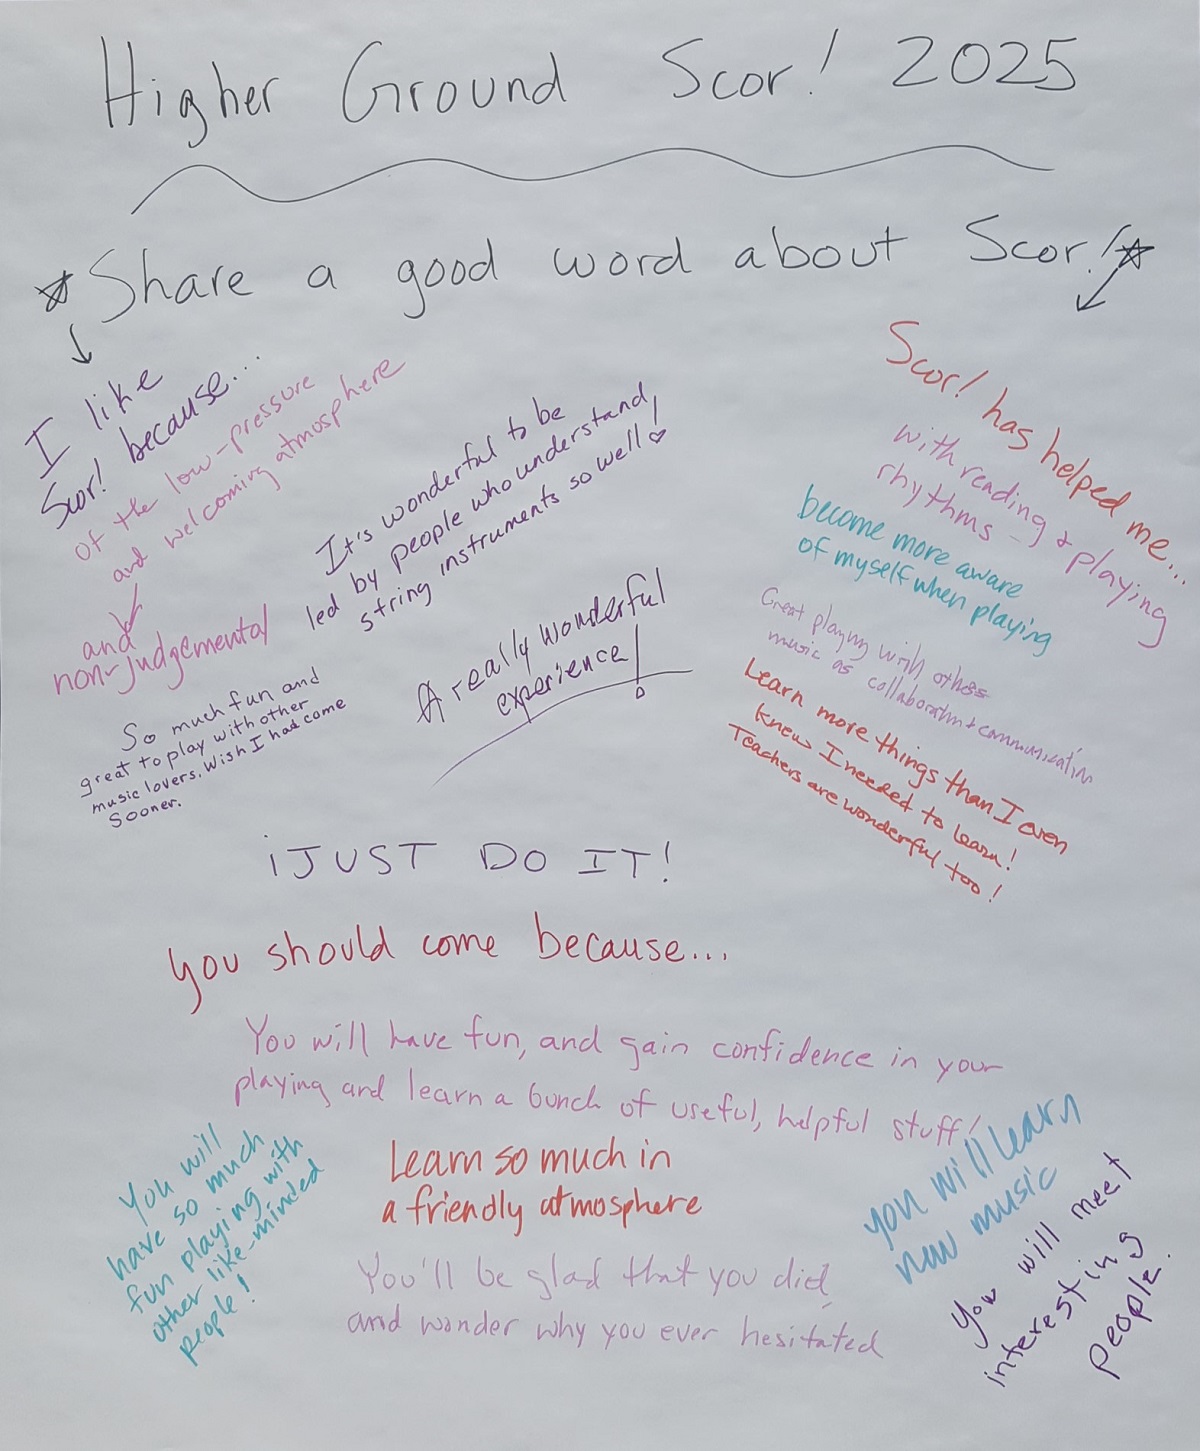 Higher Ground Scor! 2025
Share a good word about Scor!
I like
Scor! because...
of the low-pressure
and welcoming atmosphere
and
non-judgemental
It's wonderful to be
led by people who understand
string instruments so well!
A really wonderful
experience!
So much fun and
great to play with other
music lovers. Wish I had come
sooner.
Scor! has helped me...
with reading + playing
rhythms
become more aware
of myself when playing
Great playing with others
music as collaboration + communication
Learn more things than I even
knew I needed to learn!
Teachers are wonderful too!
¡JUST DO IT!
you should come because...
You will have fun, and gain confidence in your
playing and learn a bunch of useful, helpful stuff!
You will
have so much
fun playing with
other like-minded
people!
Learn so much in
a friendly atmosphere
You'll be glad that you did,
and wonder why you ever hesitated
you will learn
new music
You will meet
interesting
people.